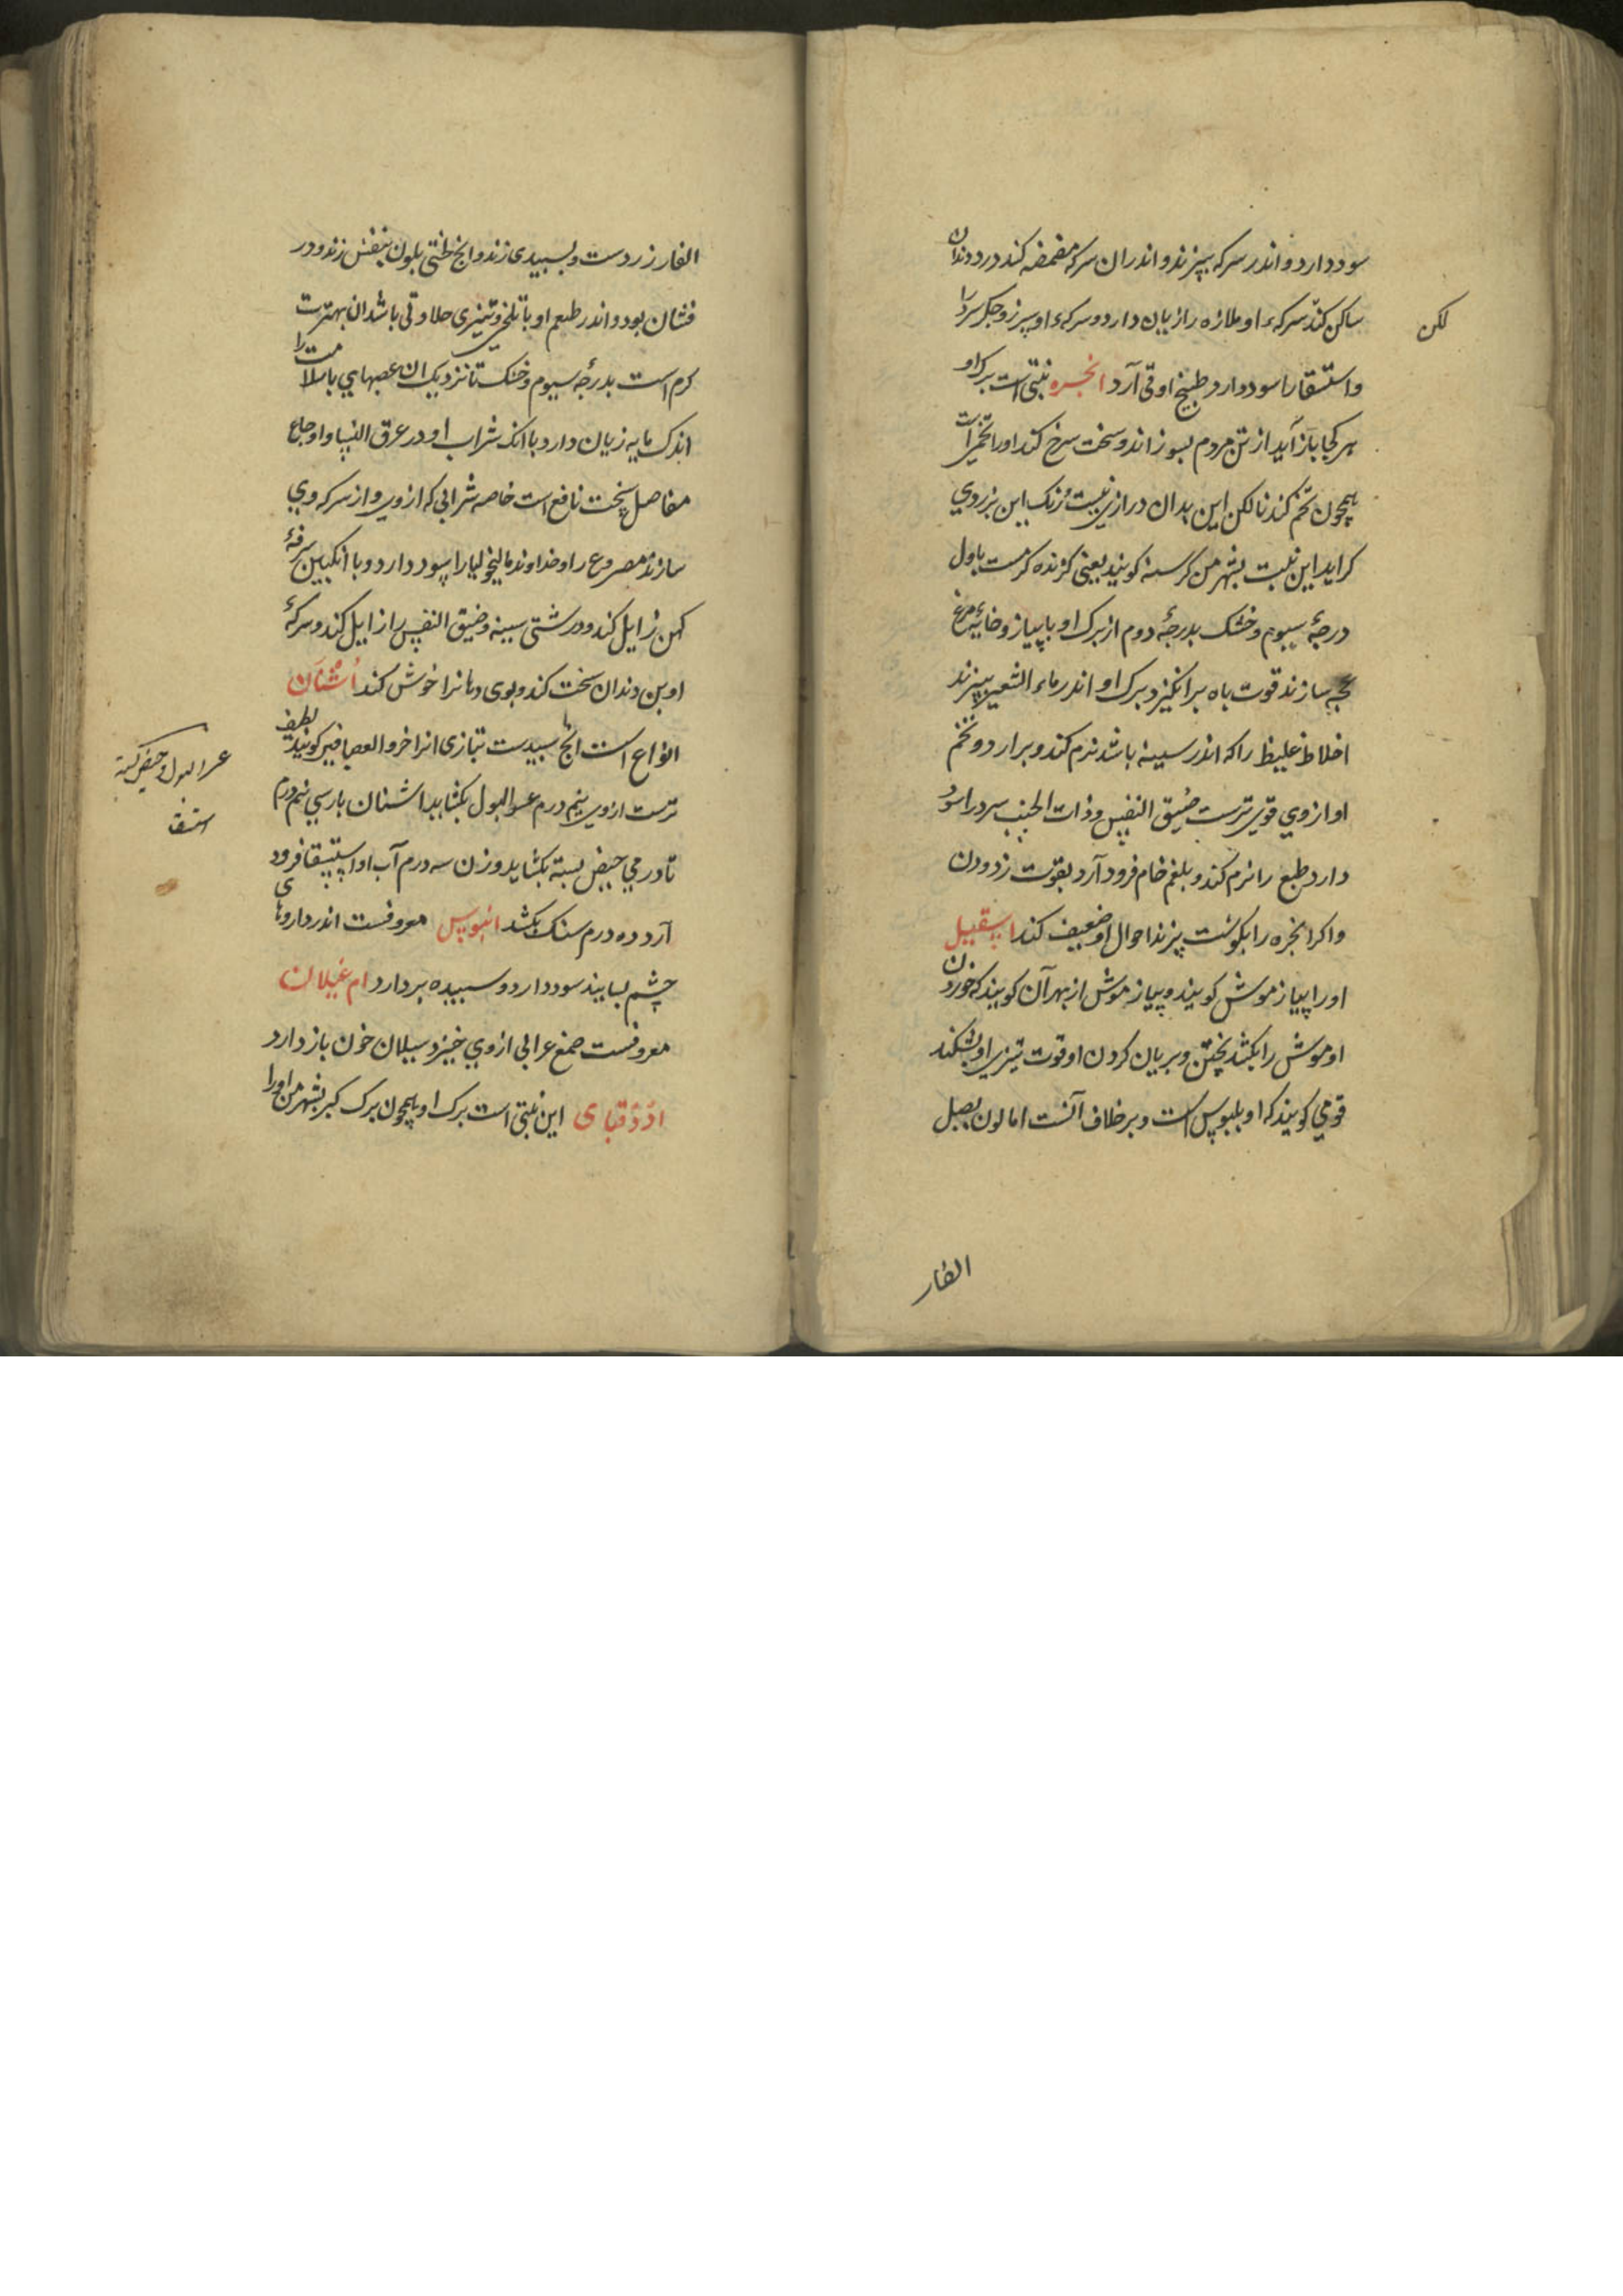 سود دارد و اندر سرکه بپزند و اندران سرکه مضمضه کند درد دندان
ساکن کند سرکهء او ملازه را زیان دارد و سرکهء او سپرز و جکر سرد را
لکن
و استسقا را سود دارد طبیخ او قی آرد انجره نبتی است برک او
هر کجا باز آید از تن مردم بسوزاند و سخت سرخ کند او را تخمیراست
همچون تخم کندنا لکن این بدان درازی نیست رنک این بزردی
کراید این نبت بشهر من کزسنه کویند یعنی کزنده کرمست باول
درجهٔ سیوم و خشک بدرجهٔ دوم از برک او با پیاز و خایهٔ مرغ
عجه سازند قوت باه برانکیزد برک او اندر ماء الشعیر بپزند
اخلاط غلیظ را که اندر سینه باشد نرم کند و برارد و تخم
او ازوی قوی ترست ضیق النفس و ذات الجنب سرد را سود
دارد طبع را نرم کند و بلغم خام فرود آرد بقوت زدودن
و اکر انجره را بکوشت پزند احوال او ضعیف کند اسقیل
او را پیاز موش کویند و پیاز موش از بهر آن کویند که خوردن
او موش را بکشد پختن و بریان کردن او قوت تیزی او بشکند
قومی کویند که او بلبوس است و بر خلاف آنست اما لون بصل
الفار
الفار زردست و بسپیدی زند و انج خنثی بلون بنفش زند و در
فشان بود و اندر طعم او با تلخی و تیزی حلاوتی باشد ان بهترست
کرم است بدرجهٔ سیوم و خشک تا نزدیک ان عصبهای باسلامت را
اندک مایه زیان دارد با انک شراب او در عرق النسا و اوجاع
مفاصل سخت نافع است خاصه شرابی که ازوی و از سرکه وی
سازند مصروع را و خداوند مالیخولیا را سود دارد و با انکبین سرفهٔ
کهن زایل کند و درشتی سینه و ضیق النفس را زایل کند و سرکهٔ
او بن دندان سخت کند و بوی دهانرا خوش کند اُشنان
انواع است انچ سپیدست بتازی انرا خرو العصافیر کویند لطیف
ترست ازوی نیم درم عسر البول بکشاید اشنان پارسی نیم درم
عسر البول و حیض بسته
استسقا
تا درمی حیض بسته بکشاید وزن سه درم آب او استسقا فرود
آرد ده درم سنک بکشد ابنوس معروفست اندر داروهای
چشم بسایند سود دارد و سبیده بردارد ام غیلان
معروفست صمغ عرابی ازوی خیزد سیلان خون باز دارد
این نبتی است برک او همچون برک کبر بشهر من او را